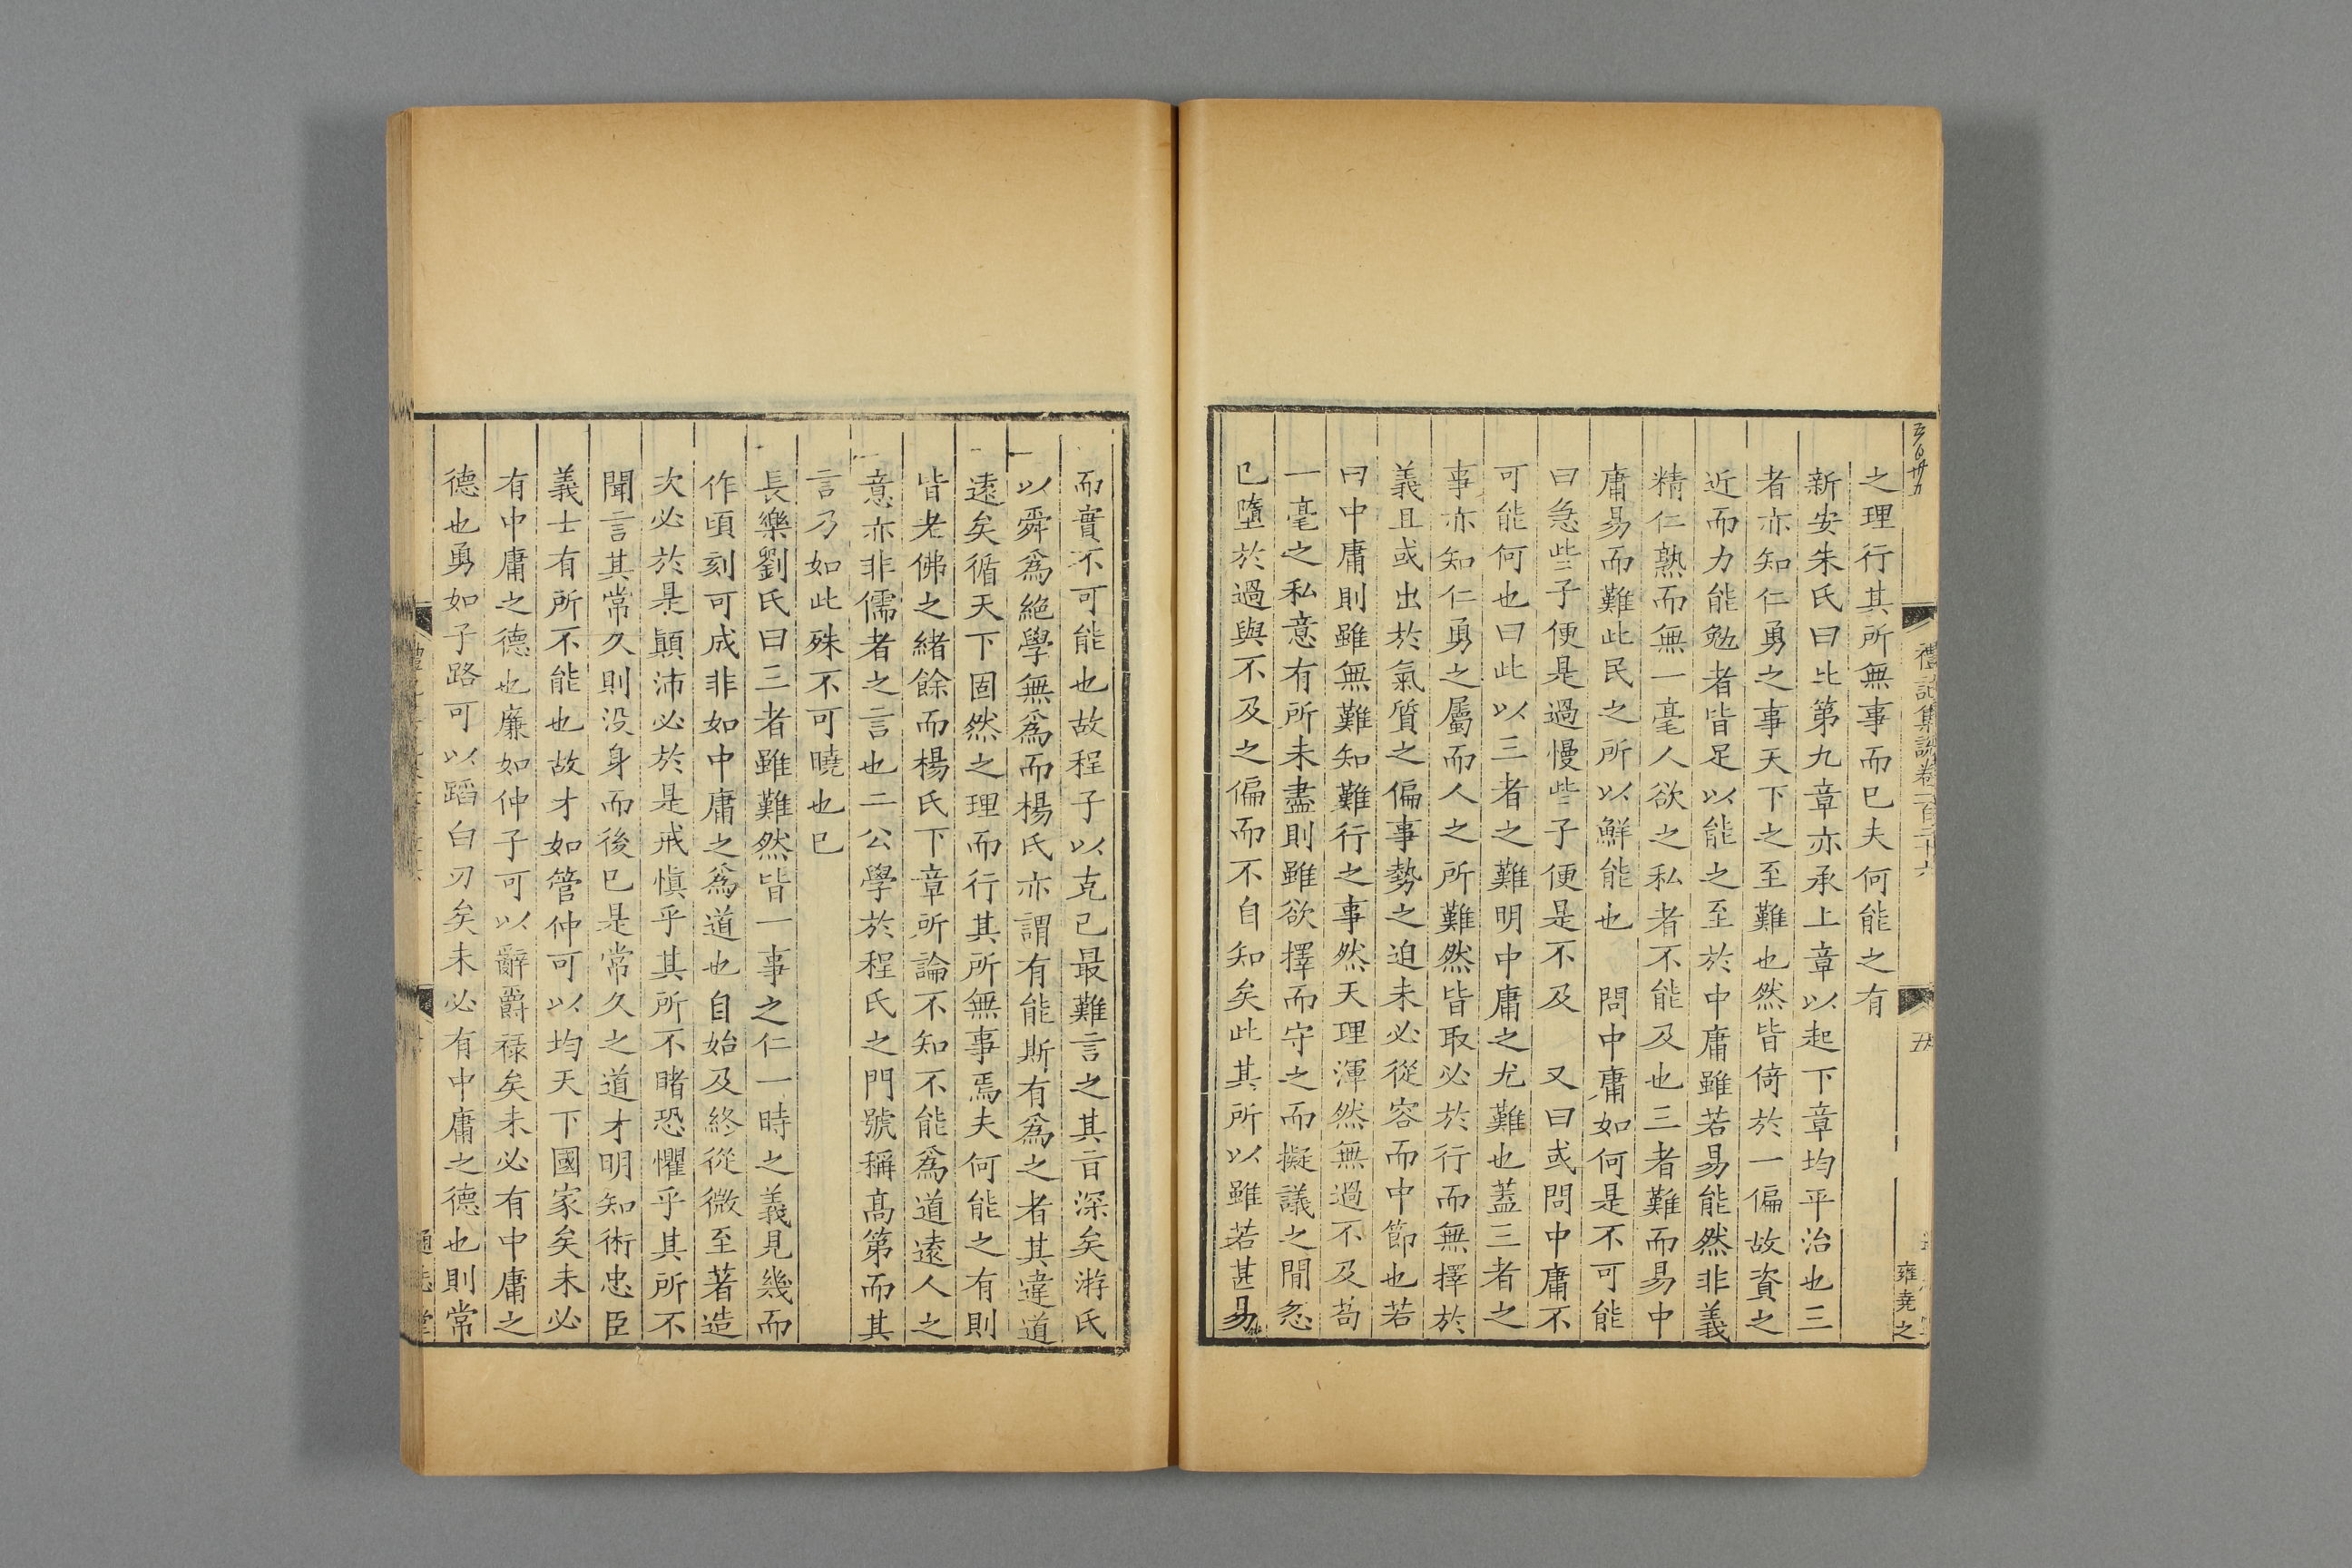 禮記集說卷一百二十六
雍堯之
之理行其所無事而已夫何能之有
新安朱氏曰此第九章亦承上章以起下章均平治也三
者亦知仁勇之事天下之至難也然皆倚於一偏故資之
近而力能勉者皆足以能之至於中庸雖若易能然非義
精仁熟而無一毫人欲之私者不能及也三者難而易中
庸易而難此民之所以鮮能也 問中庸如何是不可能
曰急些子便是過慢些子便是不及 又曰或問中庸不
可能何也曰此以三者之難明中庸之尤難也蓋三者之
事亦知仁勇之屬而人之所難然皆取必於行而無擇於
義且或出於氣質之偏事勢之迫未必從容而中節也若
曰中庸則雖無難知難行之事然天理渾然無過不及苟
一毫之私意有所未盡則雖欲擇而守之而擬議之間忽
已墮於過與不及之偏而不自知矣此其所以雖若甚易
而實不可能也故程子以克己最難言之其旨深矣游氏
以舜爲絕學無爲而楊氏亦謂有能斯有爲之者其違道
遠矣循天下固然之理而行其所無事焉夫何能之有則
皆老佛之緒餘而楊氏下章所論不知不能爲道遠人之
意亦非儒者之言也二公學於程氏之門號稱高第而其
言乃如此殊不可曉也已
長樂劉氏曰三者雖難然皆一事之仁一時之義見幾而
作頃刻可成非如中庸之爲道也自始及終從微至著造
次必於是顚沛必於是戒愼乎其所不睹恐懼乎其所不
聞言其常久則没身而後已是常久之道才明知術忠臣
義士有所不能也故才如管仲可以均天下國家矣未必
有中庸之德也廉如仲子可以辭爵祿矣未必有中庸之
德也勇如子路可以蹈白刃矣未必有中庸之德也則常